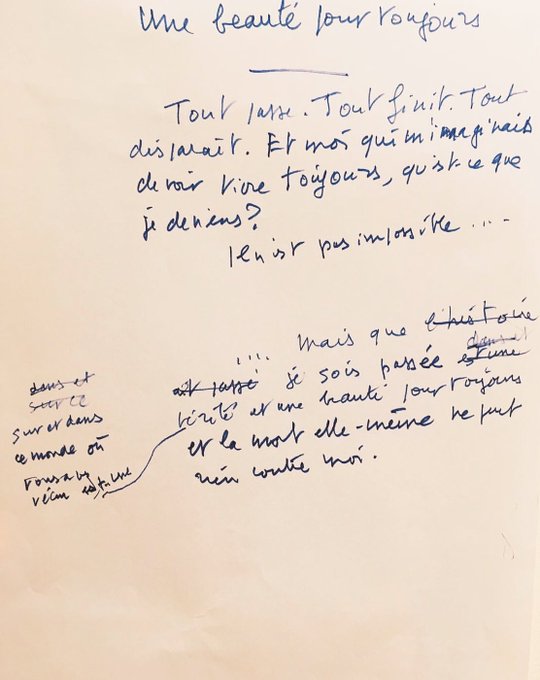 Une beauté pour toujours
Tout passe. Tout finit. Tout
disparaît. Et moi qui m'imaginais
devoir vivre toujours, qu'est-ce que
je deviens?
Il n'est pas impossible ....
.... mais que l'histoire
dans et
ait passé je sois passée est une
vérité et une beauté pour toujours
et la mort elle-même ne peut
rien contre moi.
dans et
sur ce
sur et dans
ce monde où
vous avez
vécu est une